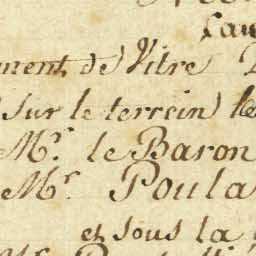 ment, de Vitre
sur le terrein le
Mr. le Baron
Mr Poula
et sous la